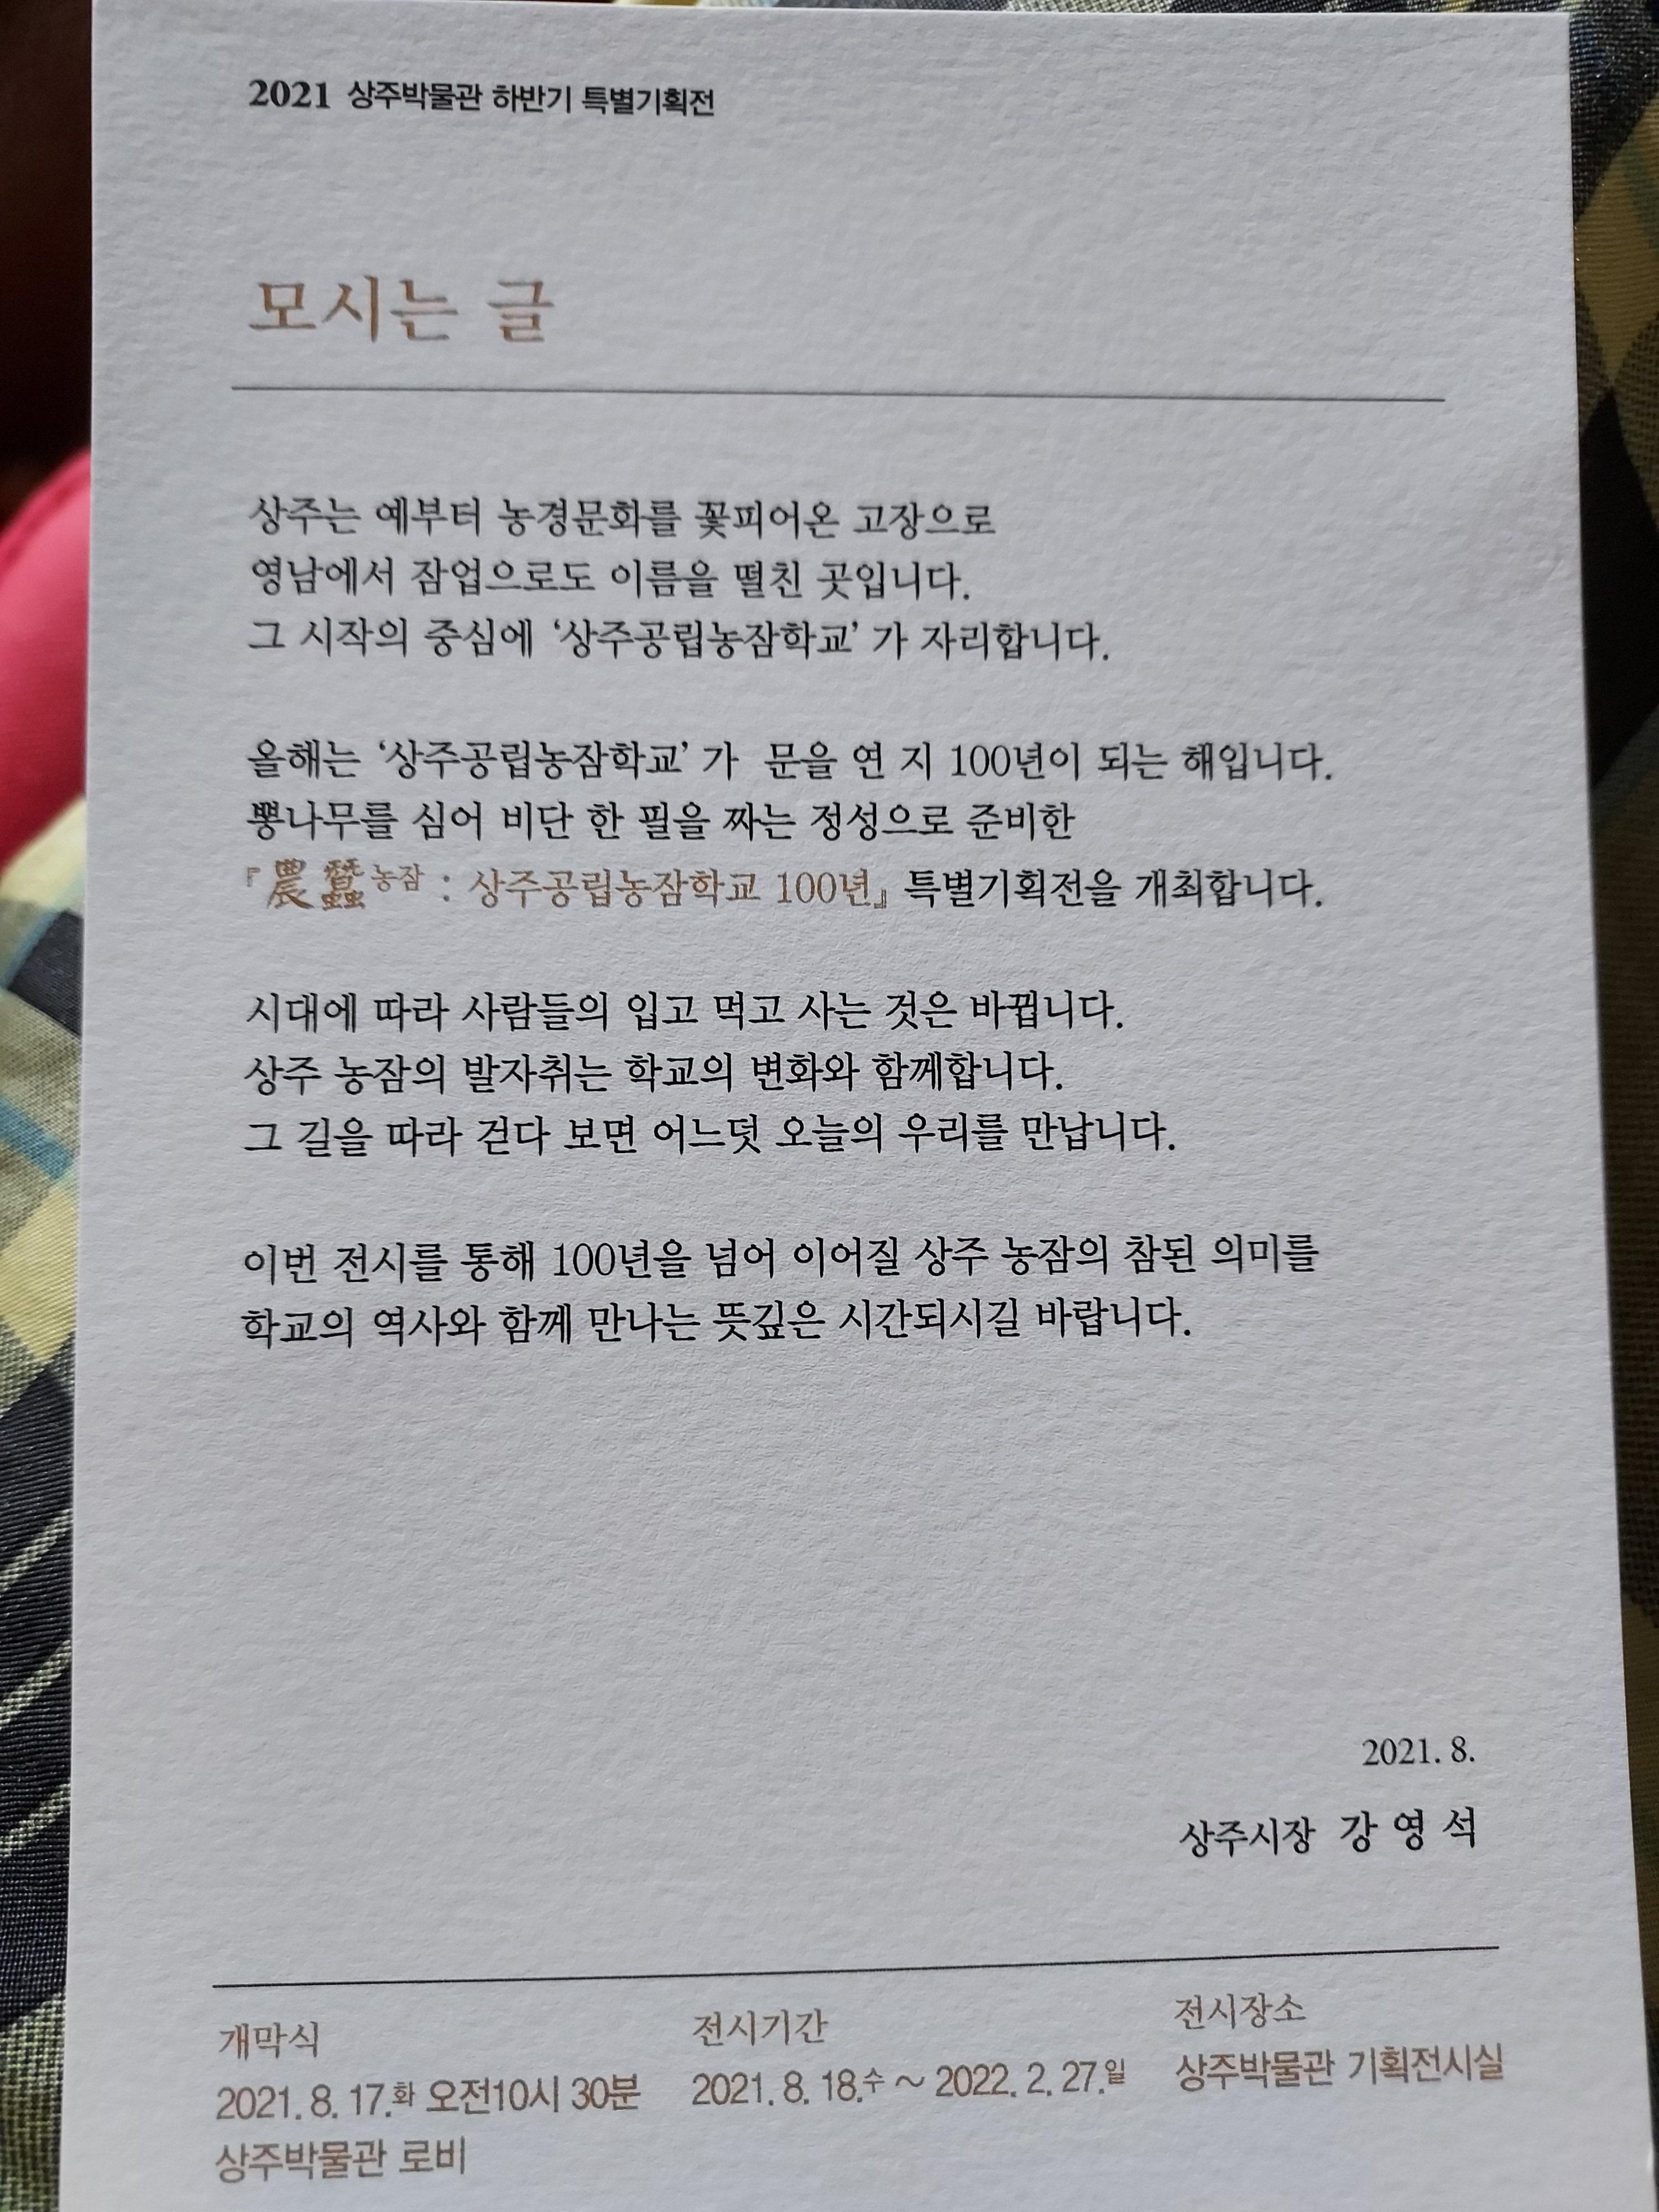 2021 상주박물관 하반기 특별기획전
모시는 글
상주는 예부터 농경문화를 꽃피어온 고장으로
영남에서 잠업으로도 이름을 떨친 곳입니다.
그 시작의 중심에 ‘상주공립농잠학교’ 가 자리합니다.
올해는 ‘상주공립농잠학교’ 가 문을 연 지 100년이 되는 해입니다.
뽕나무를 심어 비단 한 필을 짜는 정성으로 준비한
『農蠶농잠 : 상주공립농잠학교 100년』 특별기획전을 개최합니다.
시대에 따라 사람들의 입고 먹고 사는 것은 바뀝니다.
상주 농잠의 발자취는 학교의 변화와 함께합니다.
그 길을 따라 걷다 보면 어느덧 오늘의 우리를 만납니다.
이번 전시를 통해 100년을 넘어 이어질 상주 농잠의 참된 의미를
학교의 역사와 함께 만나는 뜻깊은 시간되시길 바랍니다.
2021. 8.
상주시장 강 영 석
개막식
2021. 8. 17.화 오전10시 30분
상주박물관 로비
전시기간
2021. 8. 18.수 ~ 2022. 2. 27.일
전시장소
상주박물관 기획전시실